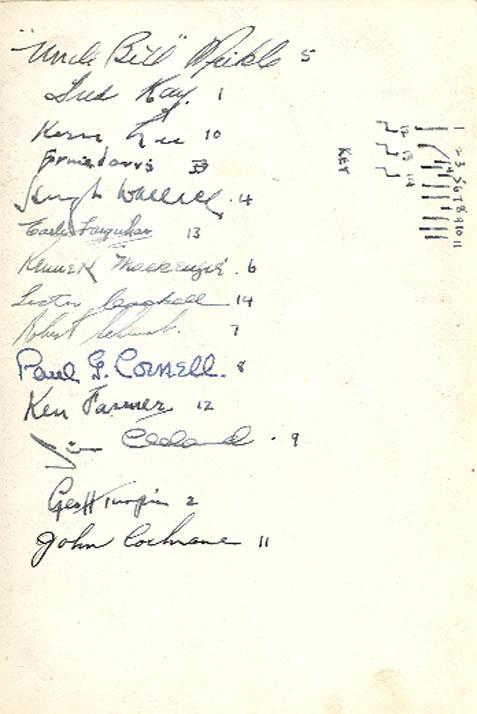 "Uncle Bill" Meikle 5
Fred Kay. 1
Kerr Lee 10
Ernie Davis 3
Wallace. 4
Earle Farquhar 13
Kenneth Mackenzie. 6
Lester 14
Robert 7
Paul G. Cornell. 8
Ken Farmer 12
Jim Cleland. 9
Geoff Turpin 2
John Cochrane 11
KEY
12 13 14
1 2 3 4 5 6 7 8 9 10 11